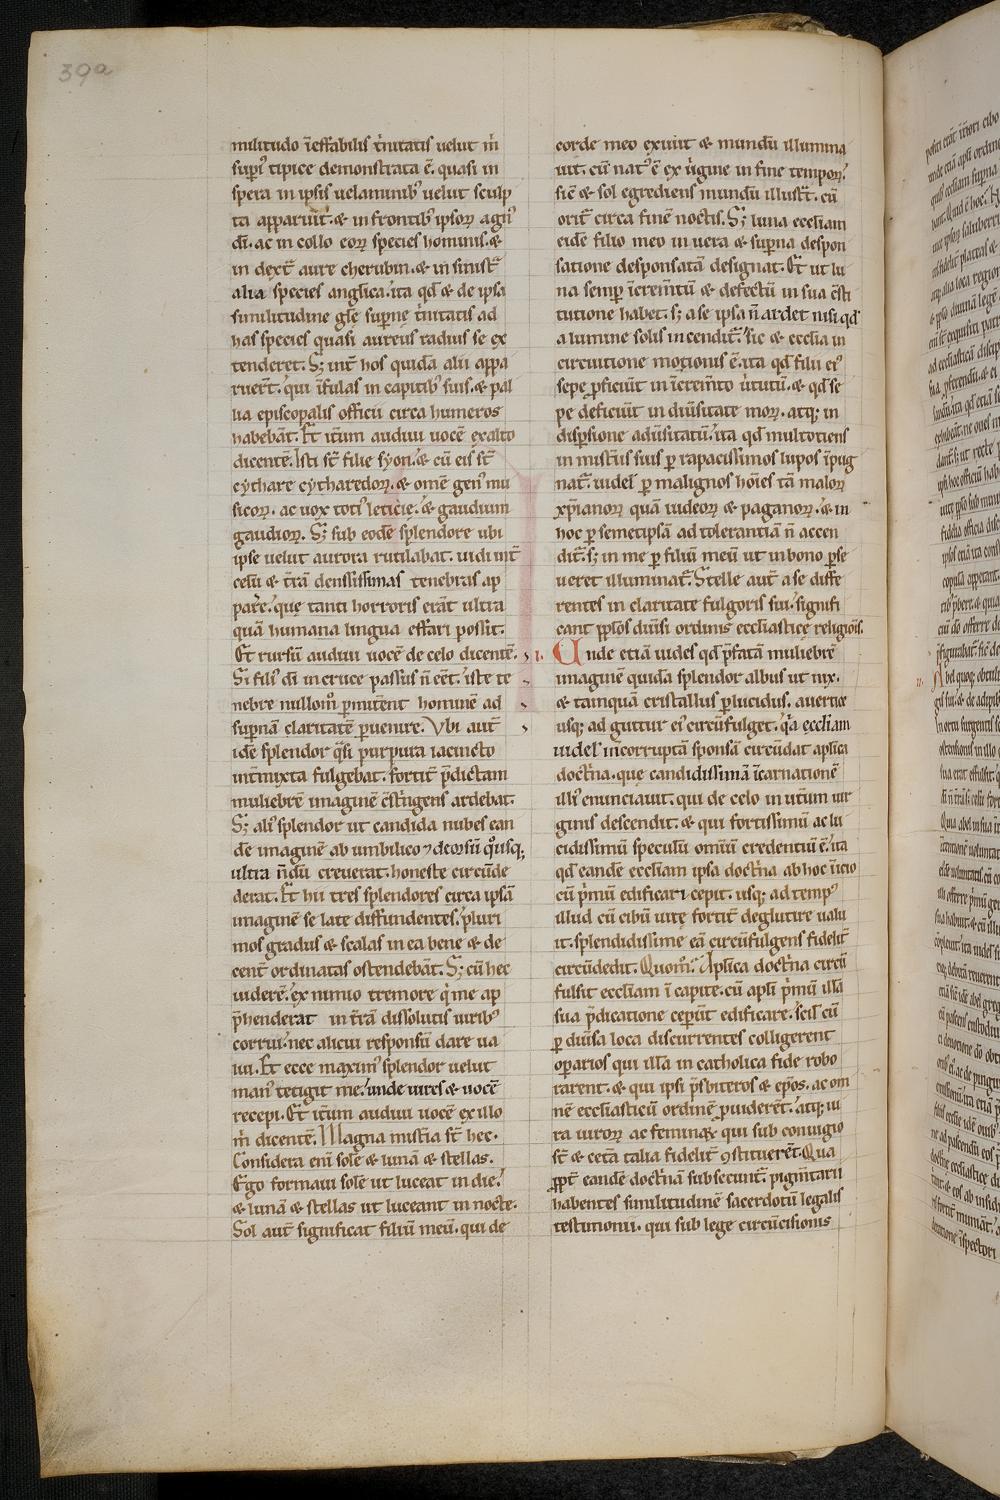 39a
militudo ĩeffabilis t̃nitatis uelut iñ
supi᷒ tipice demonstrata ẽ. quasi in
spera in ipsis uelaminib᷒ uelut sculp
ta apparuit̃. & in frontib᷒ ipsoꝝ agn᷒
dĩ. ac in collo eoꝝ species hominis. &
in dext̃ aure cherubin. & in sinist̃
alia species angl̃ica. ita qđ & de ipsa
similitudine gl̃e sup̃ne t̃nitatis ad
has species quasi aureus radius se ex
tenderet. S; int̃ hos quidã alii appa
ruer̃t. qui ĩfulas in capitib᷒ suis. & pal
lia episcopalis officii circa humeros
habebãt. Et it̃um audiui uocẽ exalto
dicentẽ. Isti st̃ filie syon. & cũ eis st̃
cythare cytharedoꝝ. & omẽ gen᷒ mu
sicoꝝ. ac uox toti᷒ leticie. & gaudium
gaudioꝝ. S; sub eodẽ splendore ubi
ipse uelut aurora rutilabat. uidi int̃
celũ & t̃rã densissimas tenebras ap
par̃e. que tanti horroris erãt ultra
quã humana lingua effari possit.
Et rursũ audiui uocẽ de celo dicentẽ.
Si fili᷒ dĩ in cruce passus ñ eẽt. iste te
nebre nullom̃ p̃mitent hominẽ ad
sup̃nã claritatẽ p̃uenire. Vbi aut̃
idẽ splendor q̃si purpura iacincto
int̃mixta fulgebat. fortit̃ p̃dictam
muliebrẽ imaginẽ c̃st̃ngens ardebat.
S; ali᷒ splendor ut candida nubes ean
dẽ imaginẽ ab umbilico ⁊ deorsũ q̊usq;
ultra ñdũ creuerat. honeste circũde
derat. Et hii tres splendores circa ipsã
imaginẽ se late diffundentes. pluri
mos gradus & scalas in ea bene & de
cent̃ ordinatas ostendebãt. S; cũ hec
uiderẽ. ex nimio tremore q̃ me ap
p̃henderat in t̃rã dissolutis uirib᷒
corrui. nec alicui responsũ dare ua
lui. Et ecce maxim᷒ splendor uelut
man᷒ tetigit me. unde uires & uocẽ
recepi. Et it̃um audiui uocẽ ex illo
m̃ dicentẽ. Magna mist̃ia st̃ hec.
Considera eni solẽ & lunã & stellas.
Ego formaui solẽ ut luceat in die.
& lunã & stellas ut luceant in nocte.
Sol aut̃ significat filiũ meũ. qui de
corde meo exiuit & mundũ illumina
uit. cũ nat᷒ ẽ ex ũgine in fine tempoꝝ.
sic̃ & sol egrediens mundũ illust̃t. cũ
orit̃ circa finẽ noctis. S; luna eccl̃iam
eidẽ filio meo in uera & sup̃na despon
satione desponsatã designat. Et ut lu
na semp̃ ĩcrem̃tũ & defectũ in sua c̃sti
tutione habet. s; a se ipsa ñ ardet nisi qđ
a lumine solis incendit̃. sic & eccl̃ia in
circuitione motionis ẽ. ita qđ filii ei᷒
sepe p̃ficiũt in ĩcrem̃to ũtutũ. & qđ se
pe deficiũt in diũsitate moꝝ. atq; in
disp̃sione adũsitatũ. ita qđ multotiens
in mist̃iis suis p̲ rapacissimos lupos ĩpug
nat̃. uidel̃ p̲ malignos hoĩes tã maloꝝ
xp̃ianoꝝ quã iudeoꝝ & paganoꝝ. & in
hoc p̲ semetipsã ad tolerantiã ñ accen
dit̃. s; in me p̲ filiũ meũ ut in bono p̲se
ueret illuminat̃. Stelle aut̃ a se diffe
rentes in claritate fulgoris sui. signifi
cant pp̃los diũsi ordinis eccl̃iastice religiõis.
i. Unde etiã uides qđ p̃fatã muliebrẽ
imaginẽ quidã splendor albus ut nix.
& tamquã cristallus p̲lucidus. a uertice
usq; ad guttur ei᷒ circũfulget. q̃a eccl̃iam
uidel̃ incorruptã sponsã circũdat apl̃ica
doct̃na. que candidissimã ĩcarnationẽ
illi᷒ enunciauit. qui de celo in ut̃um uir
ginis descendit. & qui fortissimũ ac lu
cidissimũ speculũ omiũ credentiũ ẽ. ita
qđ eandẽ eccl̃iam ipsa doct̃na ab hoc ĩicio
cũ p̃mũ edificari cepit. usq; ad temp᷒
illud cũ cibũ uite fortit̃ deglutire ualu
it. splendidissime eã circũfulgens fidelit̃
circũdedit. Quom̊. Apl̃ica doct̃na circũ
fulsit eccl̃iam ĩ capite. cũ apl̃i p̃mũ illã
sua p̃dicatione cepũt edificare. scil̃ cũ
p̲ diũsa loca discurrentes colligerent
op̃arios qui illã in catholica fide robo
rarent. & qui ipsi p̃sbiteros & ep̃os. ac om
nẽ eccl̃iasticũ ordinẽ p̲uiderẽt. atq; iu
ra uiroꝝ ac feminaꝝ qui sub coniugio
st̃ & cet̃a talia fidelit̃ 9stituerẽt. Qua
ꝓpt̃ eandẽ doct̃nã subsecunt̃. pigm̃tarii
habentes similitudinẽ sacerdotũ legalis
testimonii. qui sub lege circũcisionis